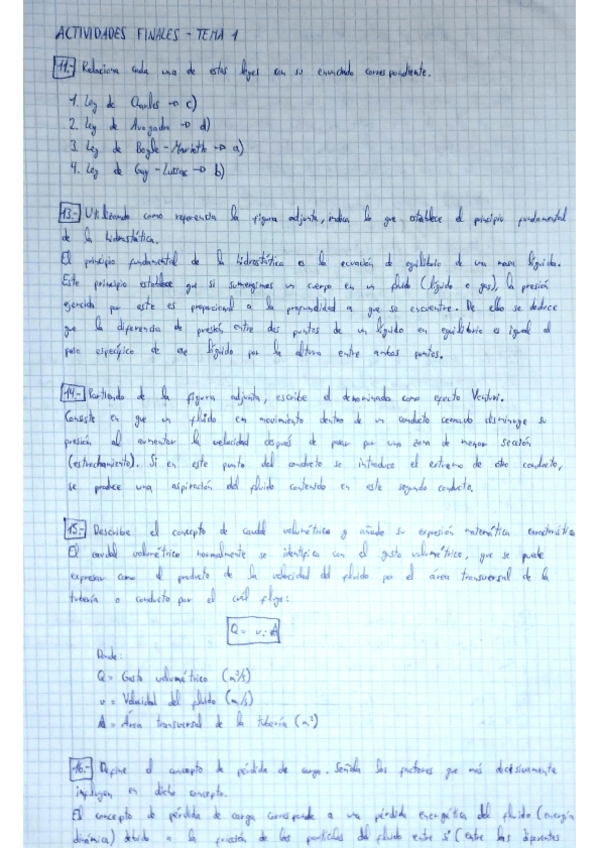 ACTIVIDADES FINALES - TEMA 1
11.- Relaciona cada una de estas leyes con su enunciado correspondiente.
1. Ley de Charles → c)
2. Ley de Avogadro → d)
3. Ley de Boyle - Mariotte → a)
4. Ley de Gay - Lussac → b)
13.- Utilizando como referencia la figura adjunta, indica lo que establece el principio fundamental
de la hidrostática.
El principio fundamental de la hidrostática o la ecuación de equilibrio de una masa líquida.
Este principio establece que si sumergimos un cuerpo en un fluido (líquido o gas), la presión
ejercida por este es proporcional a la profundidad a que se encuentre. De ello se deduce
que la diferencia de presión entre dos puntos de un líquido en equilibrio es igual al
peso específico de ese líquido por la altura entre ambos puntos.
14.- Partiendo de la figura adjunta, escribe el denominado como efecto Venturi.
Consiste en que un fluido en movimiento dentro de un conducto cerrado disminuye su
presión al aumentar la velocidad después de pasar por una zona de menor sección
(estrechamiento). Si en este punto del conducto se introduce el extremo de otro conducto,
se produce una aspiración del fluido contenido en este segundo conducto.
15.- Describe el concepto de caudal volumétrico y añade su expresión matemática característica
El caudal volumétrico normalmente se identifica con el gasto volumétrico, que se puede
expresar como el producto de la velocidad del fluido por el área transversal de la
tubería o conducto por el cuál fluye:
Q = v · A
Donde:
Q = Gasto volumétrico (m³/s)
v = Velocidad del fluido (m/s)
A = Área transversal de la tubería (m²)
16.- Define el concepto de pérdida de carga. Señala los factores que más decisivamente
influyen en dicho concepto.
El concepto de pérdida de carga corresponde a una pérdida energética del fluido (energía
dinámica) debido a la fricción de las partículas del fluido entre sí (entre las diferentes